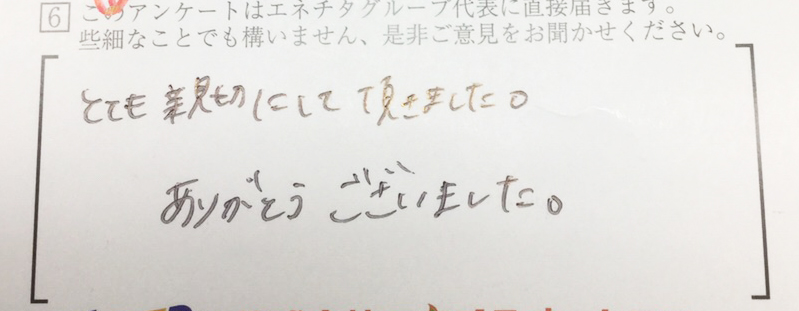 6 このアンケートはエネチタグループ代表に直接届きます。
些細なことでも構いません、是非ご意見をお聞かせください。
とても親切にして頂きました。
ありがとうございました。